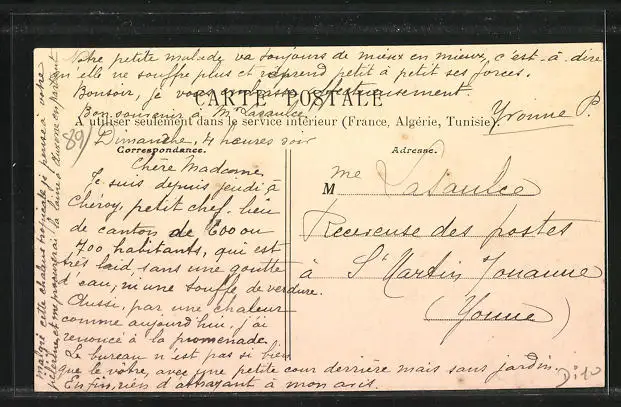 Notre petite malade va toujours de mieux en mieux, c'est-à-dire
qu'elle ne souffre plus et reprend petit à petit ses forces.
Bonsoir, je vous embrasse affectueusement.
Bon souvenir à Mr Lasaulce
Yvonne P.
CARTE POSTALE
A utiliser seulement dans le service intérieur (France, Algérie, Tunisie).
89
Dimanche, 4 heures soir
Correspondance.
Adresse.
Chère Madame
Je suis depuis jeudi à
Chéroy, petit chef-lieu
de canton de 600 ou
700 habitants, qui est
très laid, sans une goutte
d'eau, ni une touffe de verdure.
Aussi, par une chaleur
comme aujourd'hui, j'ai
renoncé à la promenade.
Le bureau n'est pas si bien
que le vôtre, avec une petite cour derrière mais sans jardin.
Enfin, rien d'attrayant à mon avis.
malgré cette chaleur tropicale je pense à votre
pèlerine, et me procurerai la laine à Auxerre en partant
Mme Lasaulce
Receveuse des postes
à St Martin
(Yonne)